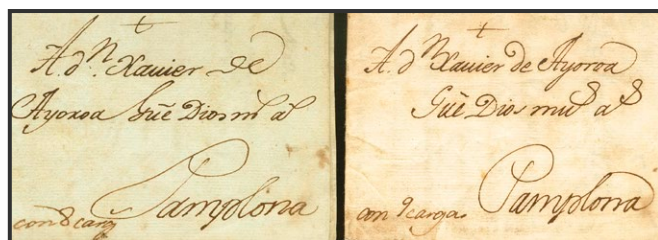 A. dⁿ. Xavier de
Ayoroa Gūe Dios mˢ aˢ
Pamplona
con 8 cargˢ
A. dⁿ Xavier de Ayoroa
Gūe Dios muˢ aˢ
Pamplona
con 9 cargas